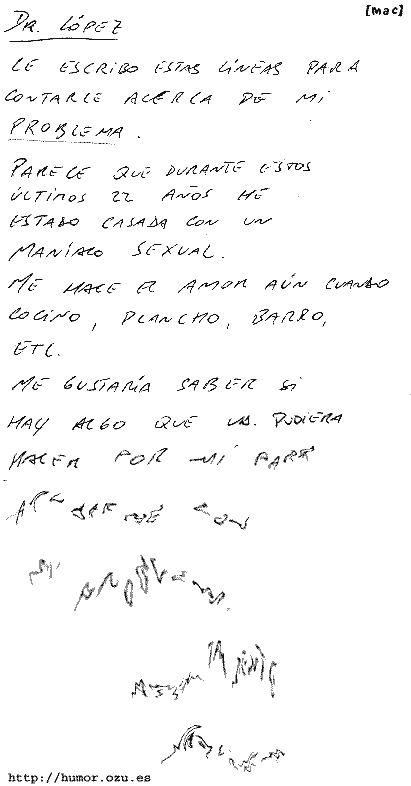 [mac]
DR. LÓPEZ
LE ESCRIBO ESTAS LÍNEAS PARA
CONTARLE ACERCA DE MI
PROBLEMA.
PARECE QUE DURANTE ESTOS
ÚLTIMOS 22 AÑOS HE
ESTADO CASADA CON UN
MANÍACO SEXUAL.
ME HACE EL AMOR AÚN CUANDO
COCINO, PLANCHO, BARRO,
ETC.
ME GUSTARÍA SABER SI
HAY ALGO QUE UD. PUDIERA
HACER POR MÍ PARA
CON
MI PROBLEMA.
http://humor.ozu.es